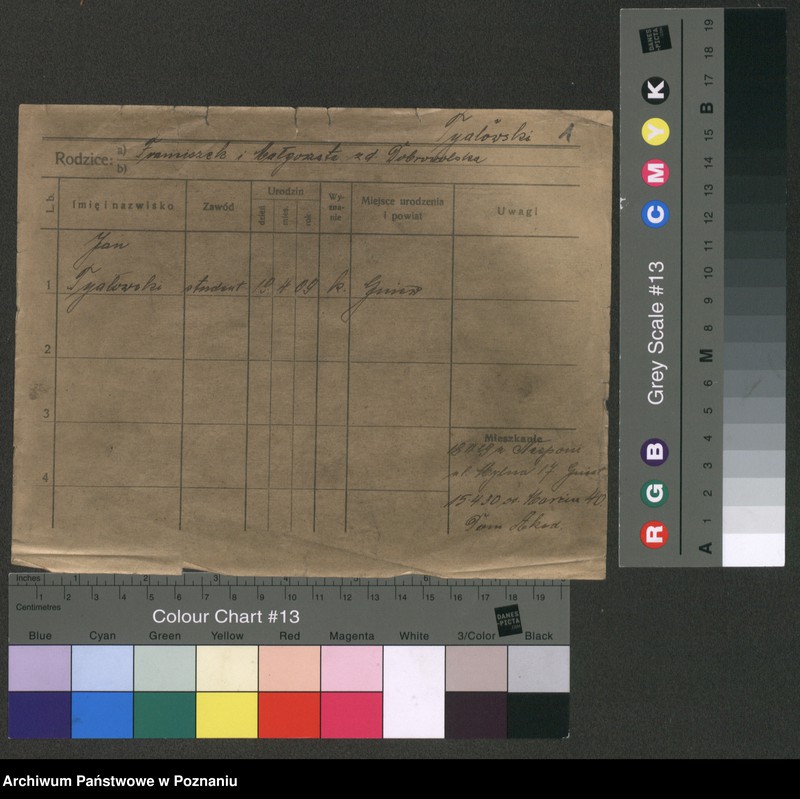 Rodzice: a) Franciszek i Małgorzata z d. Dobrowolska
b)
L. b.
Imię i nazwisko
Zawód
Urodzin
dzień
mies.
rok
Wy-
zna-
nie
Miejsce urodzenia
i powiat
Uwagi
Jan
1
student 19 4 09 k.
2
3
4
Mieszkanie
ul. 17
15 4 30 40
Dom Akad.
Grey Scale #13
A 1 2 3 4 5 6 M 8 9 10 11 12 13 14 15 B 17 18 19
R G B
C M Y K
DANES
-PICTA
.COM
Inches 1 2 3 4 5 6
1 2 3 4 5 6 7 8 9 10 11 12 13 14 15 16 17 18 19
Centimetres
Colour Chart #13
DANES
-PICTA
.COM
Blue Cyan Green Yellow Red Magenta White 3/Color Black
Archiwum Państwowe w Poznaniu